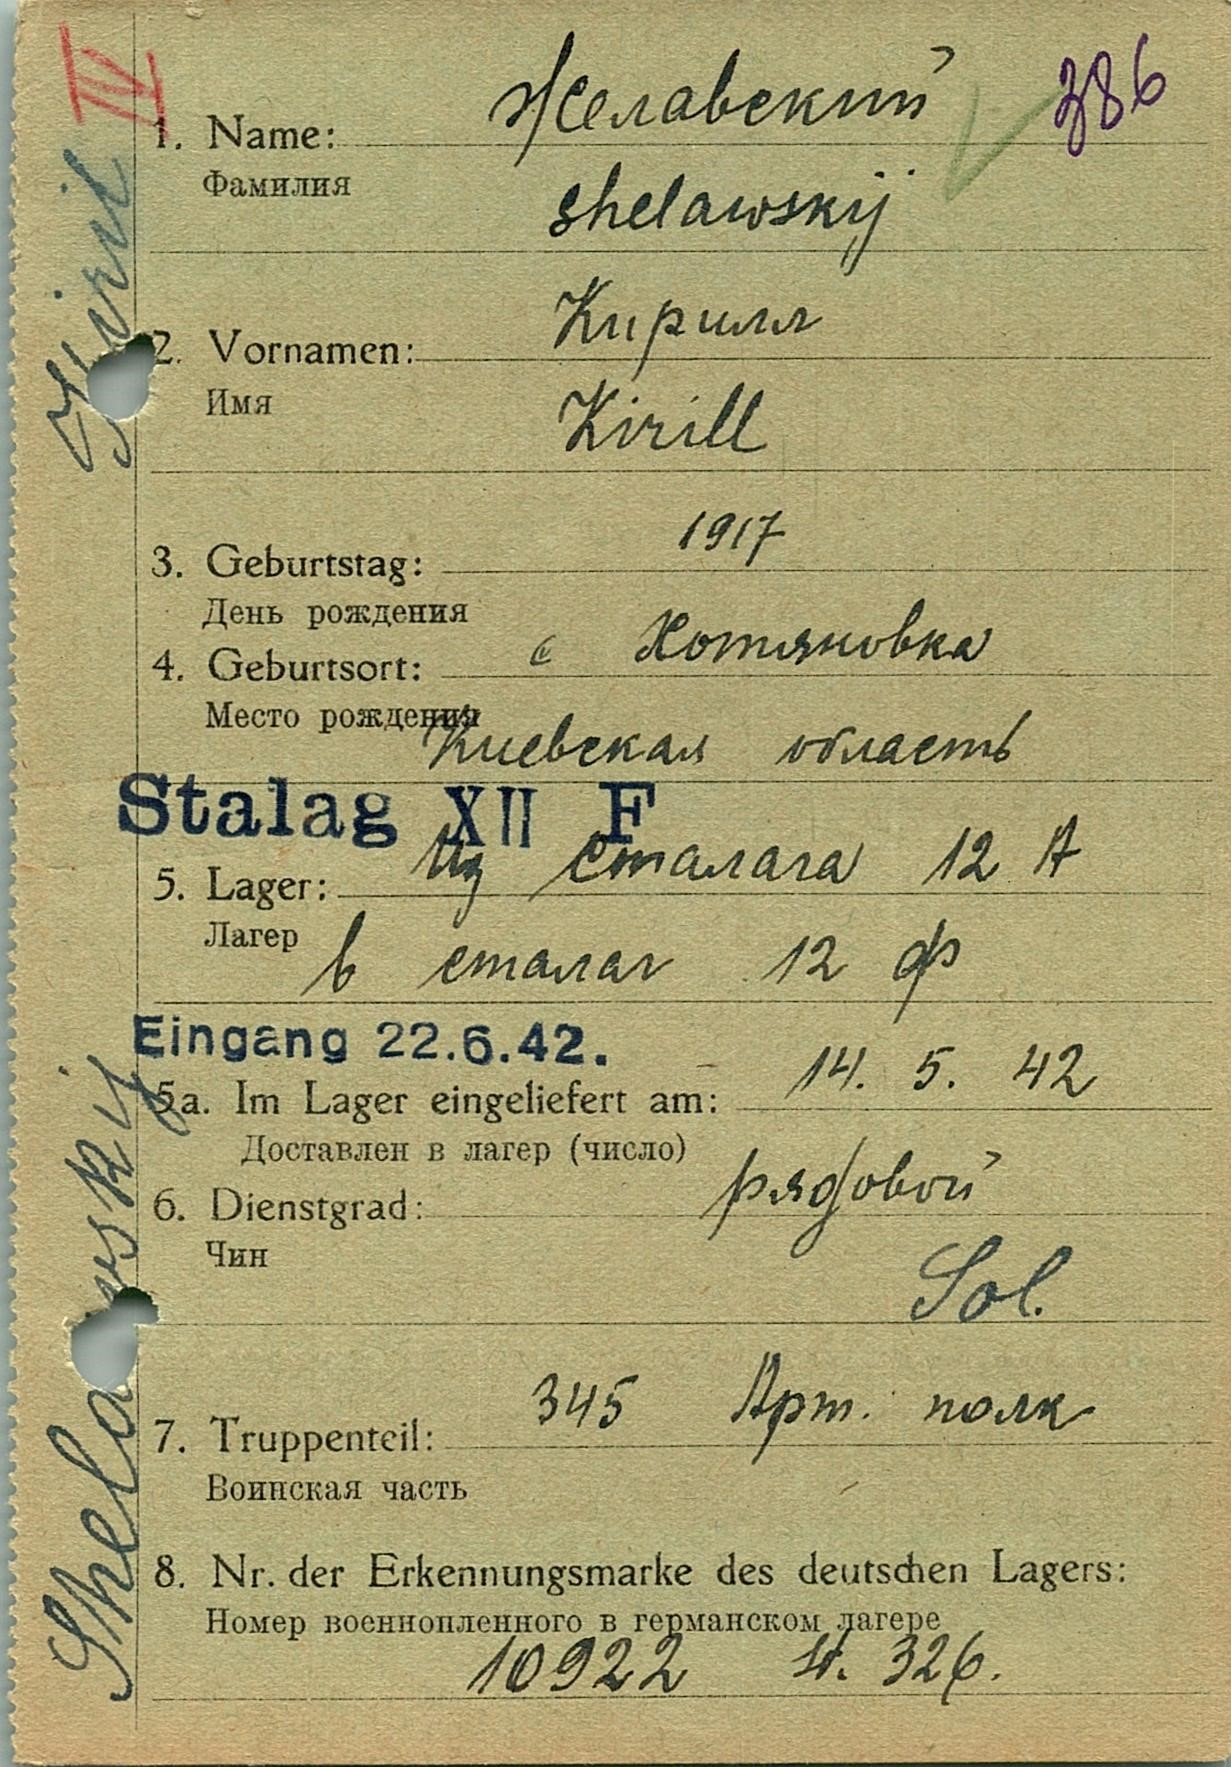 IV
386
Желавский
1. Name:
Фамилия
shelawskij
Кирилл
2. Vornamen:
Имя
Kirill
1917
3. Geburtstag:
День рождения
с Хотяновка
4. Geburtsort:
Место рождения
Киевская область
Stalag XII F
Из сталага 12 А
5. Lager:
Лагер
в сталаг 12 ф
Eingang 22.6.42.
14. 5. 42
5a. Im Lager eingeliefert am:
Доставлен в лагер (число)
рядовой
6. Dienstgrad:
Чин
Sol.
345 Арт. полк
7. Truppenteil:
Воинская часть
8. Nr. der Erkennungsmarke des deutschen Lagers:
Номер военнопленного в германском лагере
10922 St. 326.
Shelawskij Kiril